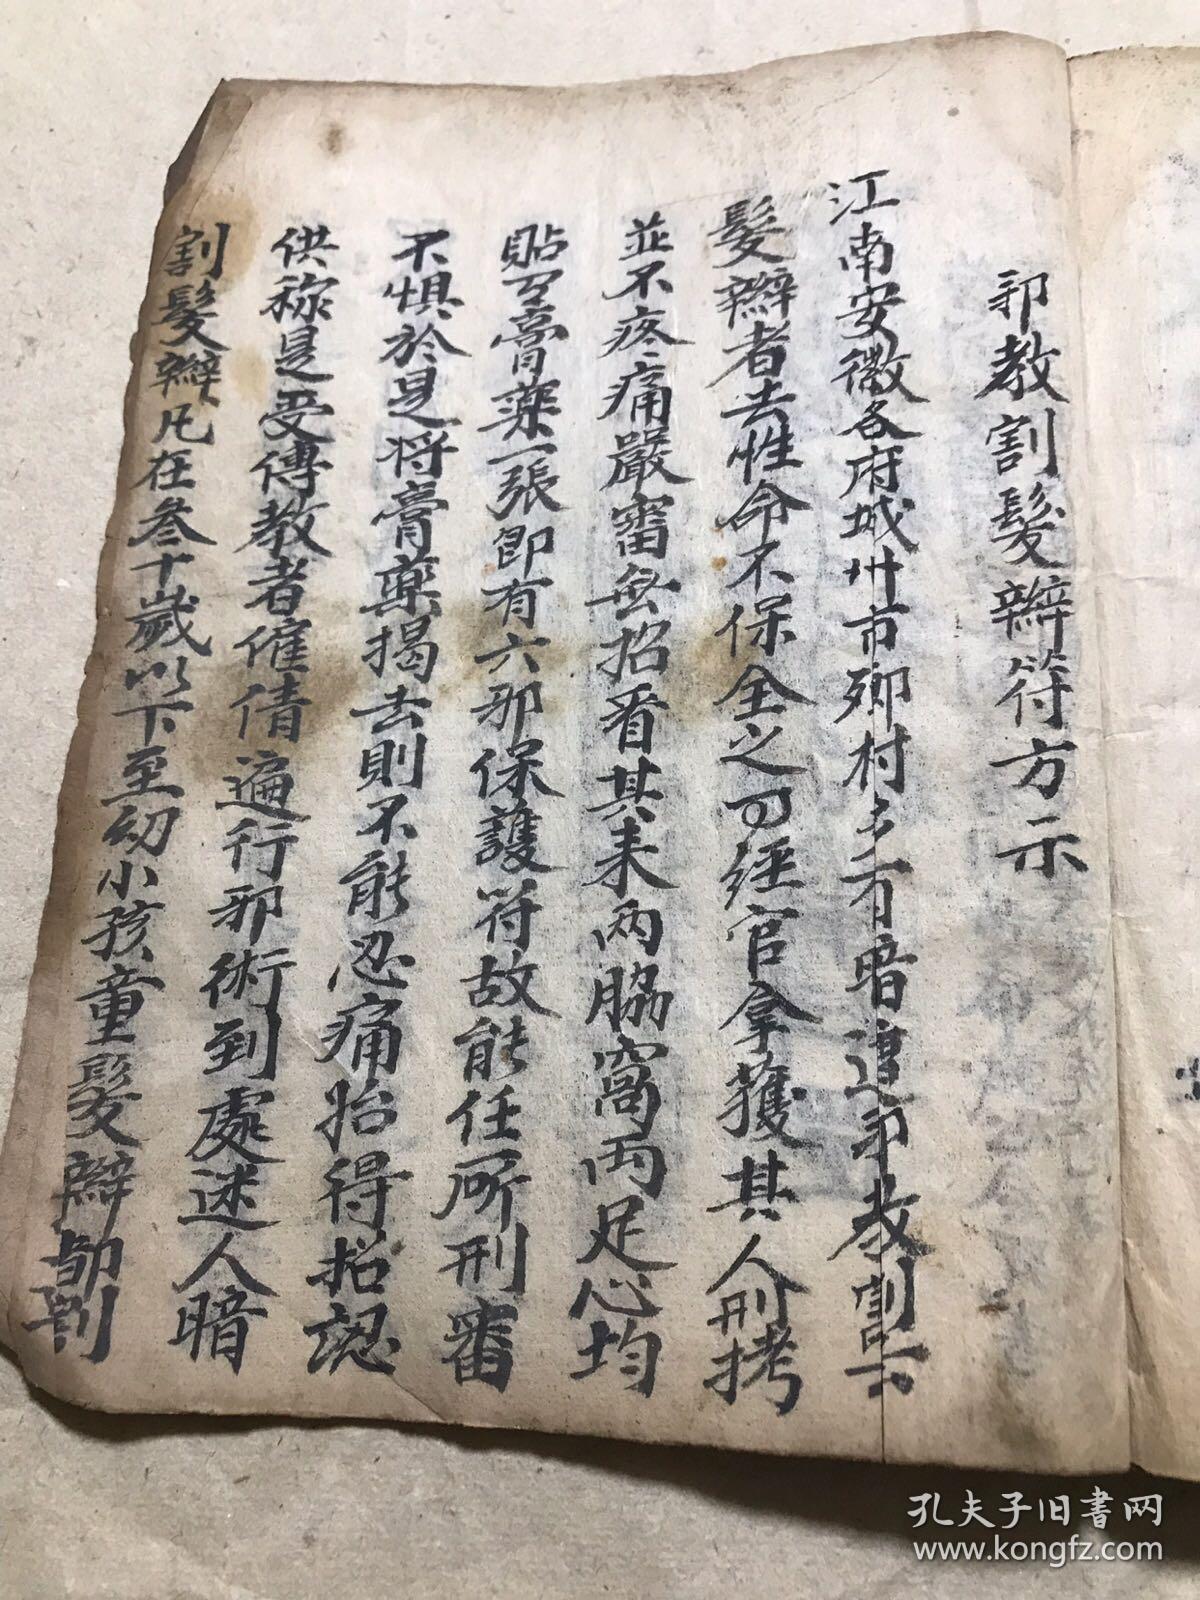 邪教割髮辮符方示
江南安徽各府城卅市鄉村多有暗遭邪教割去
髮辮者去性命不保全之可經官拿獲其人刑拷
並不疼痛嚴審無招看其未两脇窩両足心均
貼膏藥一張即有六邪保護符故能任所刑審
不惧於是将膏藥揭去則不能忍痛殆得招認
供称是受傳教者催倩遍行邪術到處迷人暗
割髮辮凡在叄十歲以下至幼小孩童髮辮
孔夫子旧书网
www.kongfz.com